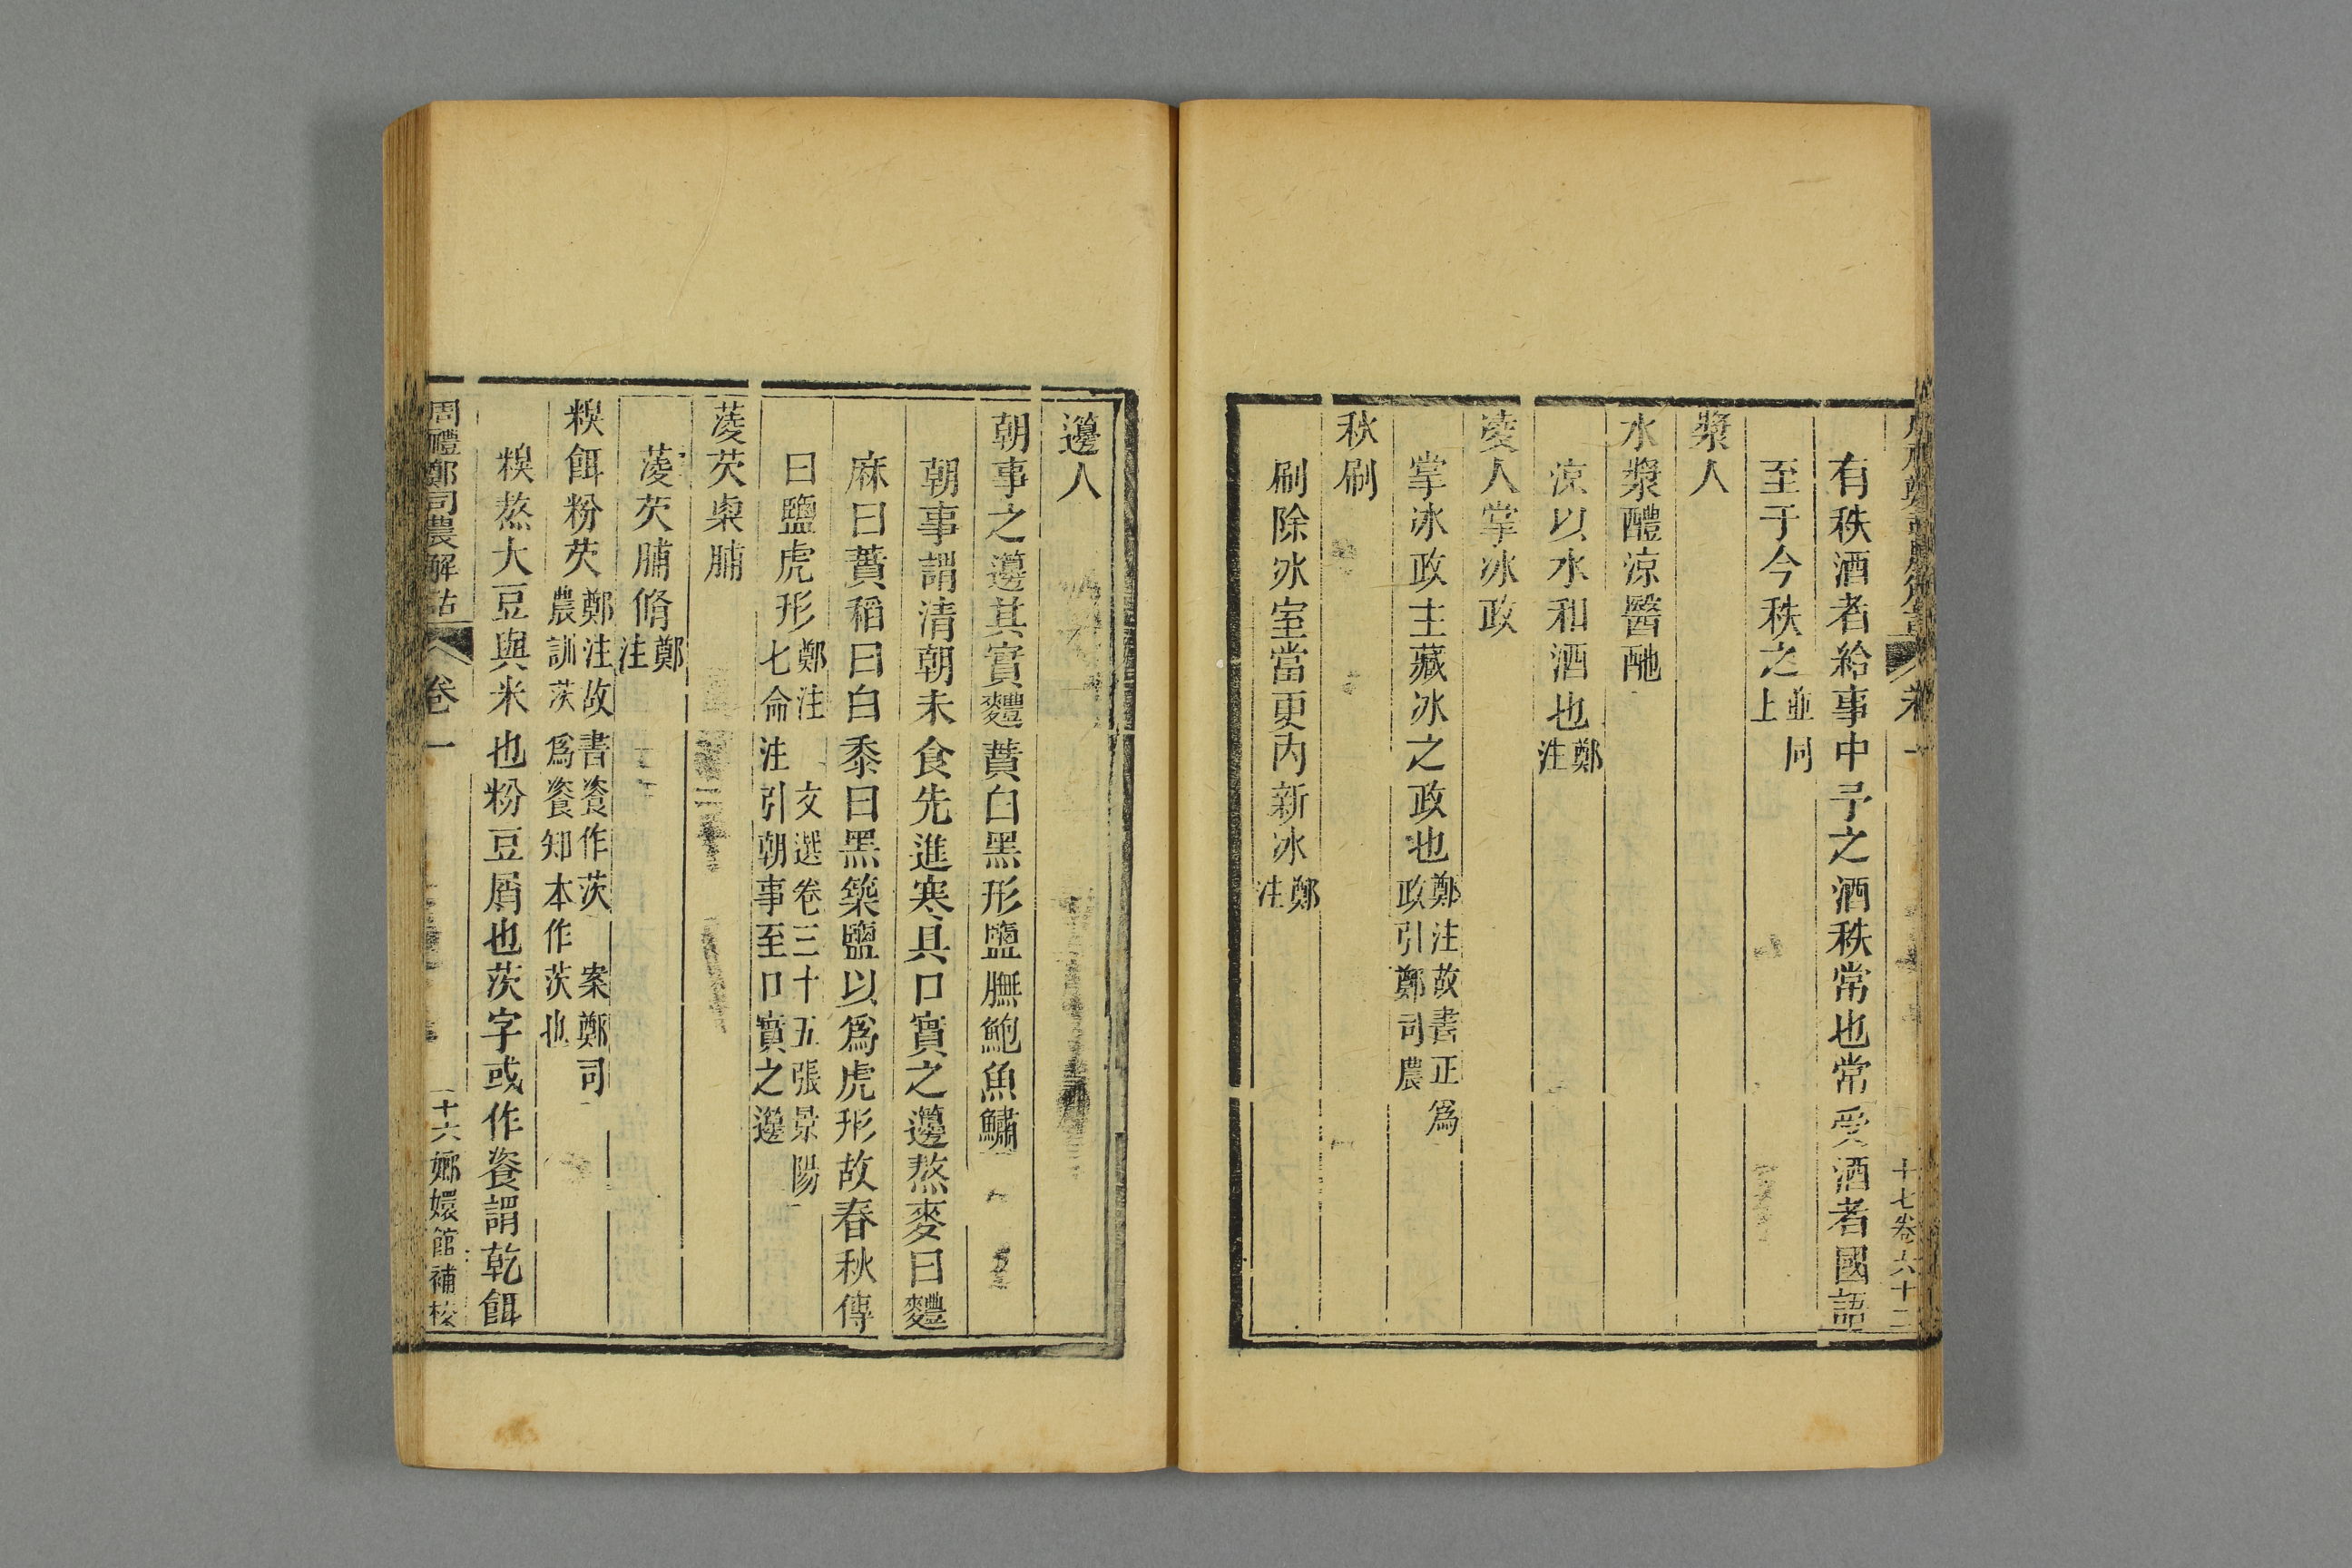 有秩酒者給事中予之酒秩常也常受酒者國語
至于今秩之並同上
漿人
水漿醴涼醫酏
涼以水和酒也鄭注
凌人掌冰政
掌冰政主藏冰之政也鄭注故書正為政引鄭司農
秋刷
刷除冰室當更內新冰鄭注
籩人
朝事之籩其實麷蕡白黑形鹽膴鮑魚鱐
朝事謂清朝未食先進寒具口實之籩熬麥曰麷
麻曰蕡稻曰白黍曰黑築鹽以為虎形故春秋傳
曰鹽虎形鄭注 文選卷三十五張景陽七命注引朝事至口實之籩
蔆芡㮚脯
蔆芡脯脩鄭注
糗餌粉芡鄭注故書餈作茨 案鄭司農訓茨為餈知本作茨也
糗熬大豆與米也粉豆屑也茨字或作餈謂乾餌
周禮鄭司農解詁 卷一 十六 嫏嬛館補校